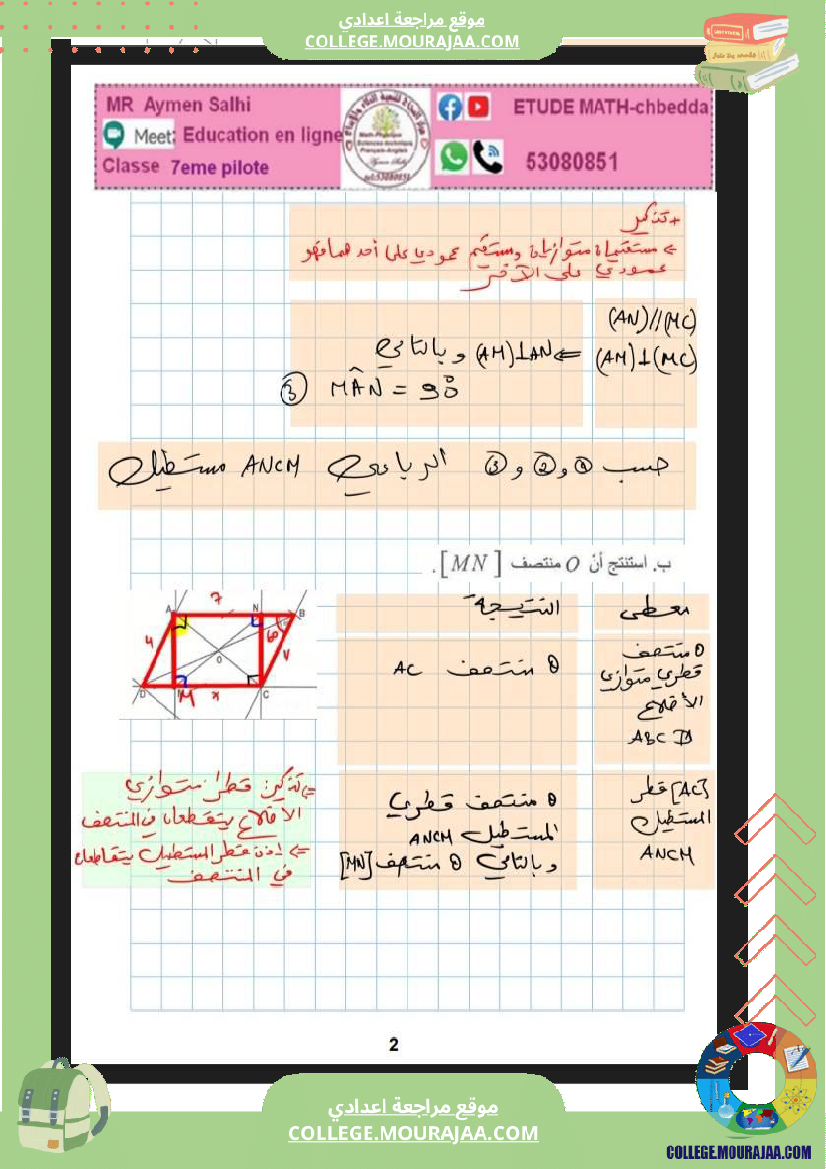 موقع مراجعة اعدادي
COLLEGE.MOURAJAA.COM
MR Aymen Salhi
Meet: Education en ligne
Classe 7eme pilote
ETUDE MATH-chbedda
53080851
+ تذكير
=> مستقيمان متوازيان ومستقيم عمودي على أحدهما فهو
عمودي على الآخر
(AN)//(MC)
(AM)⊥(MC)
=> (AM)⊥AN وبالتالي
MÂN = 90° ③
حسب ① و ② و ③ الرباعي ANCM مستطيل
ب. استنتج أنّ O منتصف [MN].
معطى
النتيجة
O منتصف
قطري متوازي
الأضلاع
ABCD
O منتصف AC
[AC] قطر
المستطيل
ANCM
O منتصف قطري
المستطيل ANCM
وبالتالي O منتصف [MN]
=> تذكير: قطرا متوازي
الأضلاع يتقاطعان في المنتصف
=> إذن قطرا المستطيل يتقاطعان
في المنتصف
7
A
N
B
4
60
O
D
M
x
C
2
موقع مراجعة اعدادي
COLLEGE.MOURAJAA.COM
COLLEGE.MOURAJAA.COM